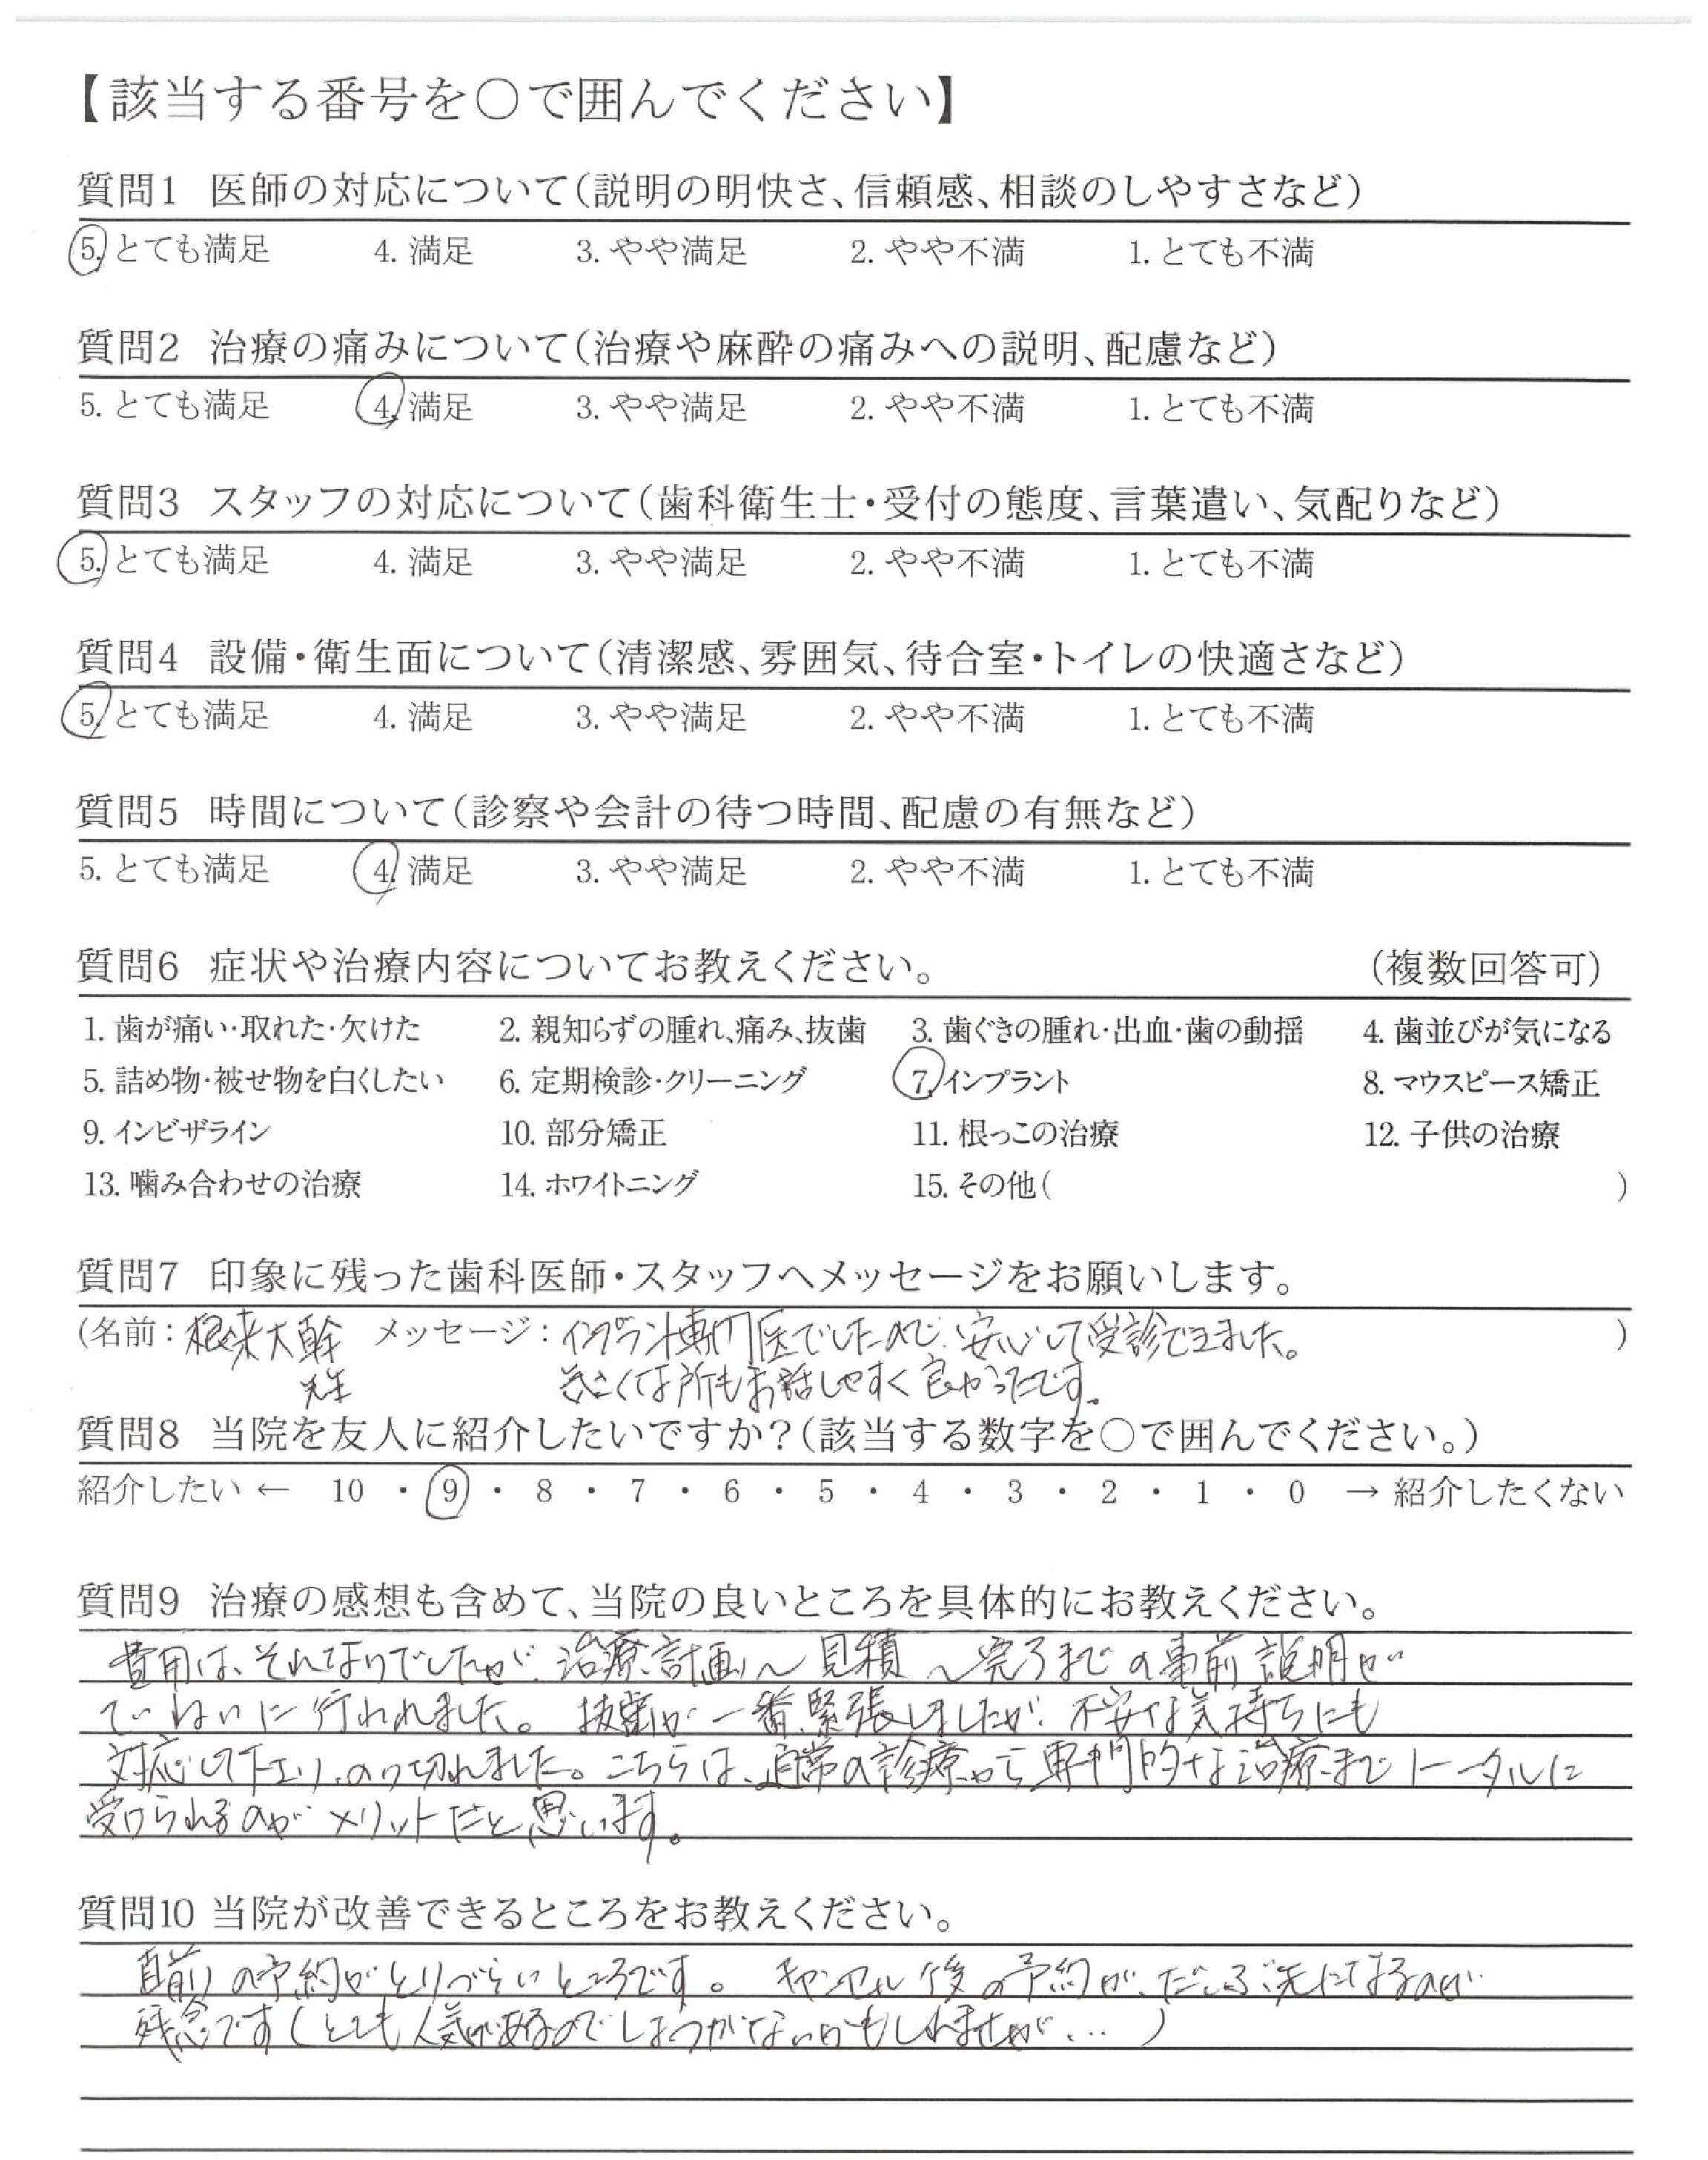 【該当する番号を〇で囲んでください】
質問1 医師の対応について(説明の明快さ、信頼感、相談のしやすさなど)
5. とても満足 4. 満足 3. やや満足 2. やや不満 1. とても不満
質問2 治療の痛みについて(治療や麻酔の痛みへの説明、配慮など)
5. とても満足 4. 満足 3. やや満足 2. やや不満 1. とても不満
質問3 スタッフの対応について(歯科衛生士・受付の態度、言葉遣い、気配りなど)
5. とても満足 4. 満足 3. やや満足 2. やや不満 1. とても不満
質問4 設備・衛生面について(清潔感、雰囲気、待合室・トイレの快適さなど)
5. とても満足 4. 満足 3. やや満足 2. やや不満 1. とても不満
質問5 時間について(診察や会計の待つ時間、配慮の有無など)
5. とても満足 4. 満足 3. やや満足 2. やや不満 1. とても不満
質問6 症状や治療内容についてお教えください。 (複数回答可)
1. 歯が痛い・取れた・欠けた 2. 親知らずの腫れ、痛み、抜歯 3. 歯ぐきの腫れ・出血・歯の動揺 4. 歯並びが気になる
5. 詰め物・被せ物を白くしたい 6. 定期検診・クリーニング 7. インプラント 8. マウスピース矯正
9. インビザライン 10. 部分矯正 11. 根っこの治療 12. 子供の治療
13. 噛み合わせの治療 14. ホワイトニング 15. その他( )
質問7 印象に残った歯科医師・スタッフへメッセージをお願いします。
(名前: 根来大幹 メッセージ: インプラント専門医でしたので、安心して受診できました。 )
先生 きさくな所もお話しやすく良かったです。
質問8 当院を友人に紹介したいですか?(該当する数字を〇で囲んでください。)
紹介したい ← 10 ・ 9 ・ 8 ・ 7 ・ 6 ・ 5 ・ 4 ・ 3 ・ 2 ・ 1 ・ 0 → 紹介したくない
質問9 治療の感想も含めて、当院の良いところを具体的にお教えください。
費用は、それなりでしたが、治療計画〜見積〜完了までの事前説明が
ていねいに行われました。抜歯が一番緊張しましたが、不安な気持ちにも
対応して下さり、のり切れました。こちらは、通常の診療から専門的な治療までトータルに
受けられるのがメリットだと思います。
質問10 当院が改善できるところをお教えください。
直前の予約がとりづらいところです。キャンセル後の予約が、だいぶ先になるのが
残念です(とても人気があるのでしょうがないかもしれませんが…)